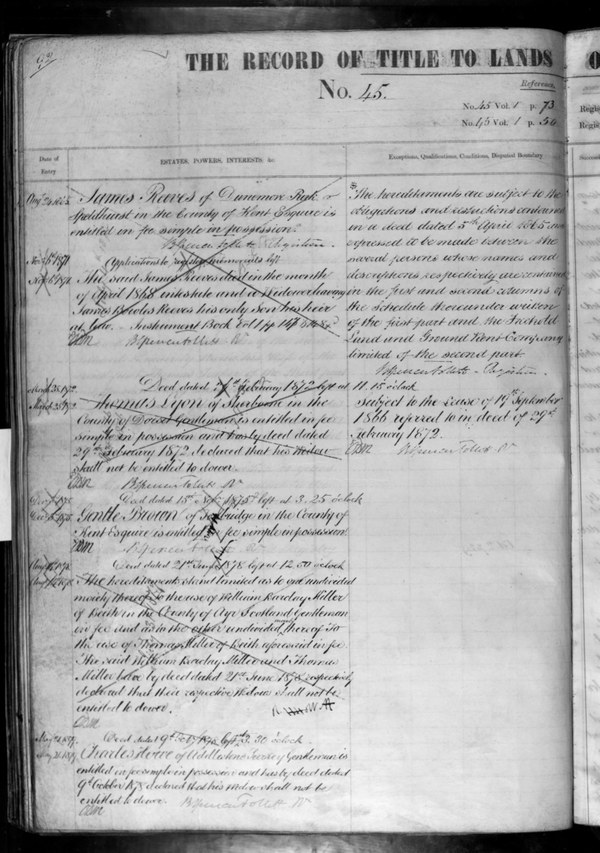 THE RECORD OF TITLE TO LANDS
No. 45.
Reference.
No. 45 Vol. 1 p. 73
No. 45 Vol. 1 p.
Date of Entry
ESTATES, POWERS, INTERESTS, &c.
Exceptions, Qualifications, Conditions, Disputed Boundary
James Reeves of Dunmore Park
Speldhurst in the County of Kent Esquire is
entitled in fee simple in possession.
B Spencer Follett Registrar.
Application to register left
The said James Reeves died in the month
of April 1868 intestate and a Widower leaving
James Reeves his only son his heir
at law. Instrument Book Vol 1
B Spencer Follett Rr
The hereditaments are subject to the
obligations and restrictions contained
in a deed dated 5th April 1865 and
expressed to be made between the
several persons whose names and
descriptions respectively are contained
in the first and second columns of
the Schedule thereunder written
of the first part and the Freehold
Land and Ground Rent Company
limited of the second part.
B Spencer Follett Registrar.
Deed dated 29th February 1872 left at 11.15 o'clock
Thomas Lyon of Sherborne in the
County of Dorset Gentleman is entitled in fee
simple in possession and has by deed dated
29th February 1872 declared that his widow
shall not be entitled to dower.
B Spencer Follett Rr
Subject to the lease of 19th September
1866 referred to in deed of 29th
February 1872.
B Spencer Follett Rr
Deed dated 18th 1875 left at 3.25 o'clock
Gentle Brown of Tonbridge in the County of
Kent Esquire is entitled in fee simple in possession.
B Spencer Follett Rr
Deed dated 21st June 1878 left at 12.50 o'clock
The hereditaments stand limited as to one undivided
moiety thereof to the use of William Barclay Miller
of Beith in the County of Ayr Scotland Gentleman
in fee and as to the other undivided thereof to
the use of Thomas Miller of Beith aforesaid in fee
The said William Barclay Miller and Thomas
Miller have by deed dated 21st June 1878 respectively
declared that their respective widows shall not be
entitled to dower.
Deed dated 9th left 3.30 o'clock.
Charles of Gentleman is
entitled in fee simple in possession and has by deed dated
9th October 1878 declared that his widow shall not be
entitled to dower. B Spencer Follett Rr